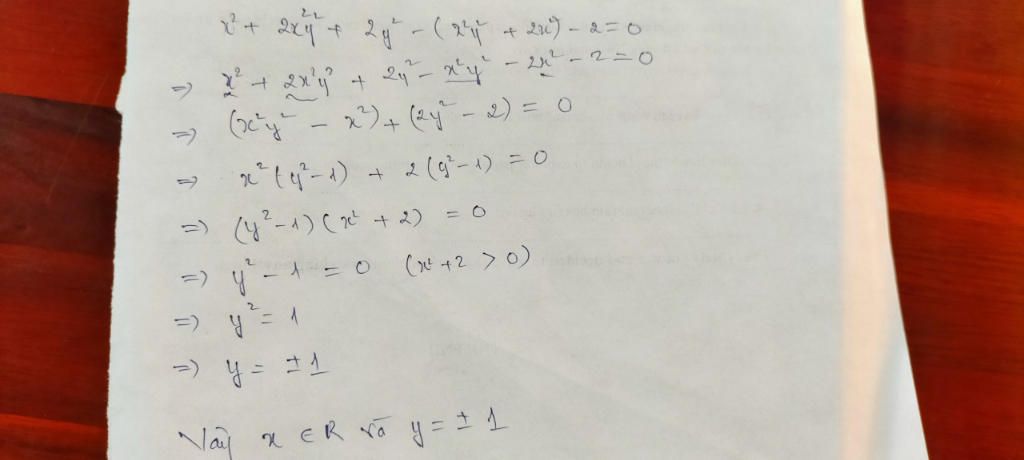 x² + 2x²y² + 2y² - (x²y² + 2x²) - 2 = 0
=> x² + 2x²y² + 2y² - x²y² - 2x² - 2 = 0
=> (x²y² - x²) + (2y² - 2) = 0
=> x²(y²-1) + 2(y²-1) = 0
=> (y²-1)(x² + 2) = 0
=> y² - 1 = 0 (x²+2 > 0)
=> y² = 1
=> y = ±1
Vậy x ∈ R và y = ±1